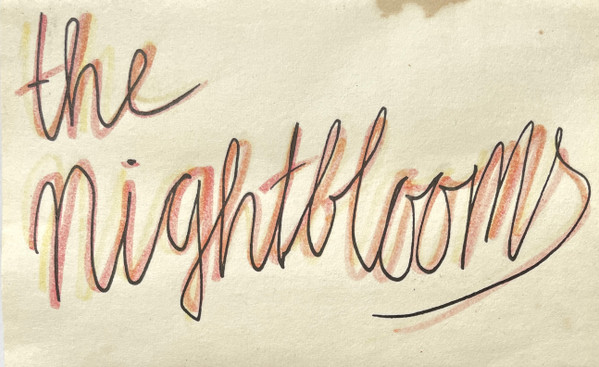 the
nightblooms